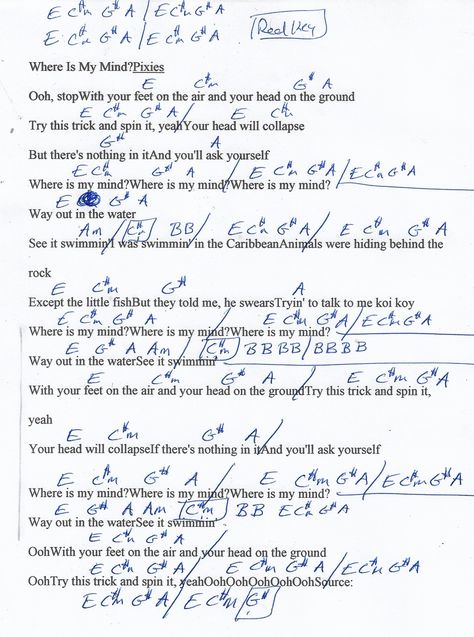 E C#m G# A / E C#m G# A
E C#m G# A / E C#m G# A
Real Key
Where Is My Mind?Pixies
E C#m G# A
Ooh, stopWith your feet on the air and your head on the ground
E C#m G# A / E C#m
Try this trick and spin it, yeahYour head will collapse
G# A
But there's nothing in itAnd you'll ask yourself
E C#m G# A / E C#m G# A / E C#m G# A
Where is my mind?Where is my mind?Where is my mind?
E G# A
Way out in the water
Am / C#m BB / E C#m G# A / E C#m G# A
See it swimmin'I was swimmin' in the CaribbeanAnimals were hiding behind the
rock
E C#m G# A
Except the little fishBut they told me, he swearsTryin' to talk to me koi koy
E C#m G# A / E C#m G# A / E C#m G# A
Where is my mind?Where is my mind?Where is my mind?
E G# A Am / C#m BBBB / BBBB
Way out in the waterSee it swimmin'
E C#m G# A / E C#m G#
With your feet on the air and your head on the groundTry this trick and spin it,
yeah
E C#m G# A /
Your head will collapseIf there's nothing in itAnd you'll ask yourself
E C#m G# A / E C#m G# A / E C#m G# A
Where is my mind?Where is my mind?Where is my mind?
E G# A Am / C#m BB E C#m G# A
Way out in the waterSee it swimmin'
E C#m G# A /
OohWith your feet on the air and your head on the ground
E C#m G# A / E C#m G# A / E C#m G# A
OohTry this trick and spin it, yeahOohOohOohOohOohOohSource:
E C#m G# A / E C#m / G#